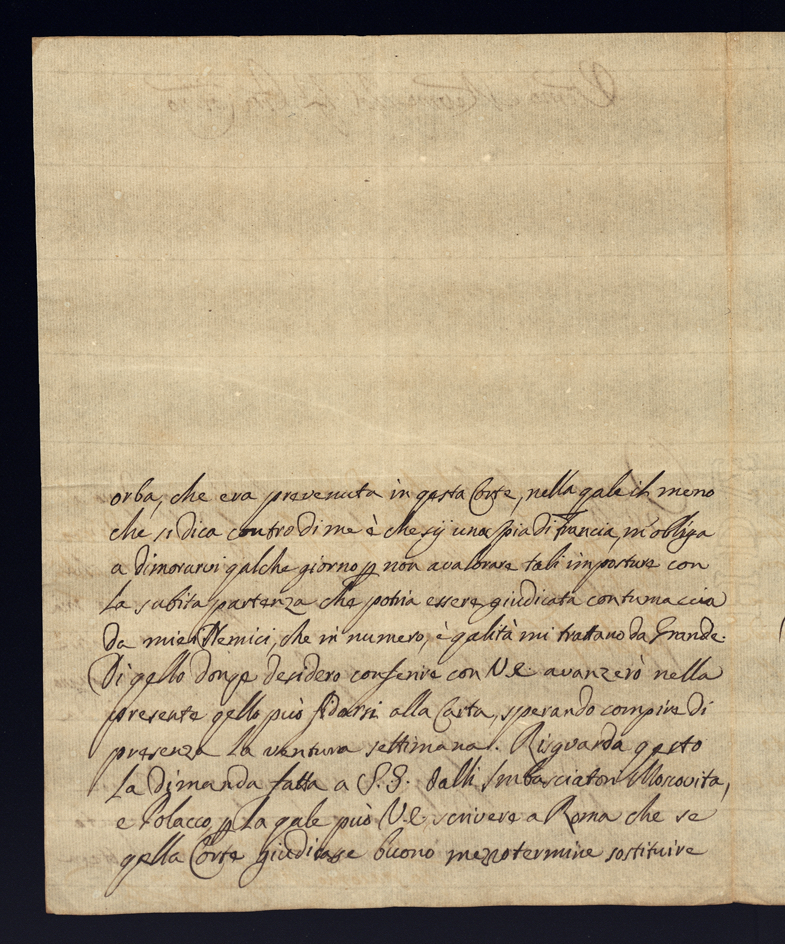 orba, che era prevenuta in qesta Corte, nella qale il meno
che si dica contro di me è che sij una spia di Francia, m'obliga
a dimorarvi qalche giorno p non avalorare tali imposture con
la subita partenza che potria essere giudicata contumaccia
da miei Nemici, che in numero, è qalità mi trattano da Grande.
Di qello donqe desidero conferire con V.E. avanzerò nella
presente qello può fidarsi alla Carta, sperando compire di
presenza la ventura settimana. Risguarda qesto
la dimanda fatta a S.S. dalli Imbasciatori Moscovita,
e Polacco, p la qale può V.E. scrivere a Roma che se
qella Corte giudicasse buono mezzo termine sostituire